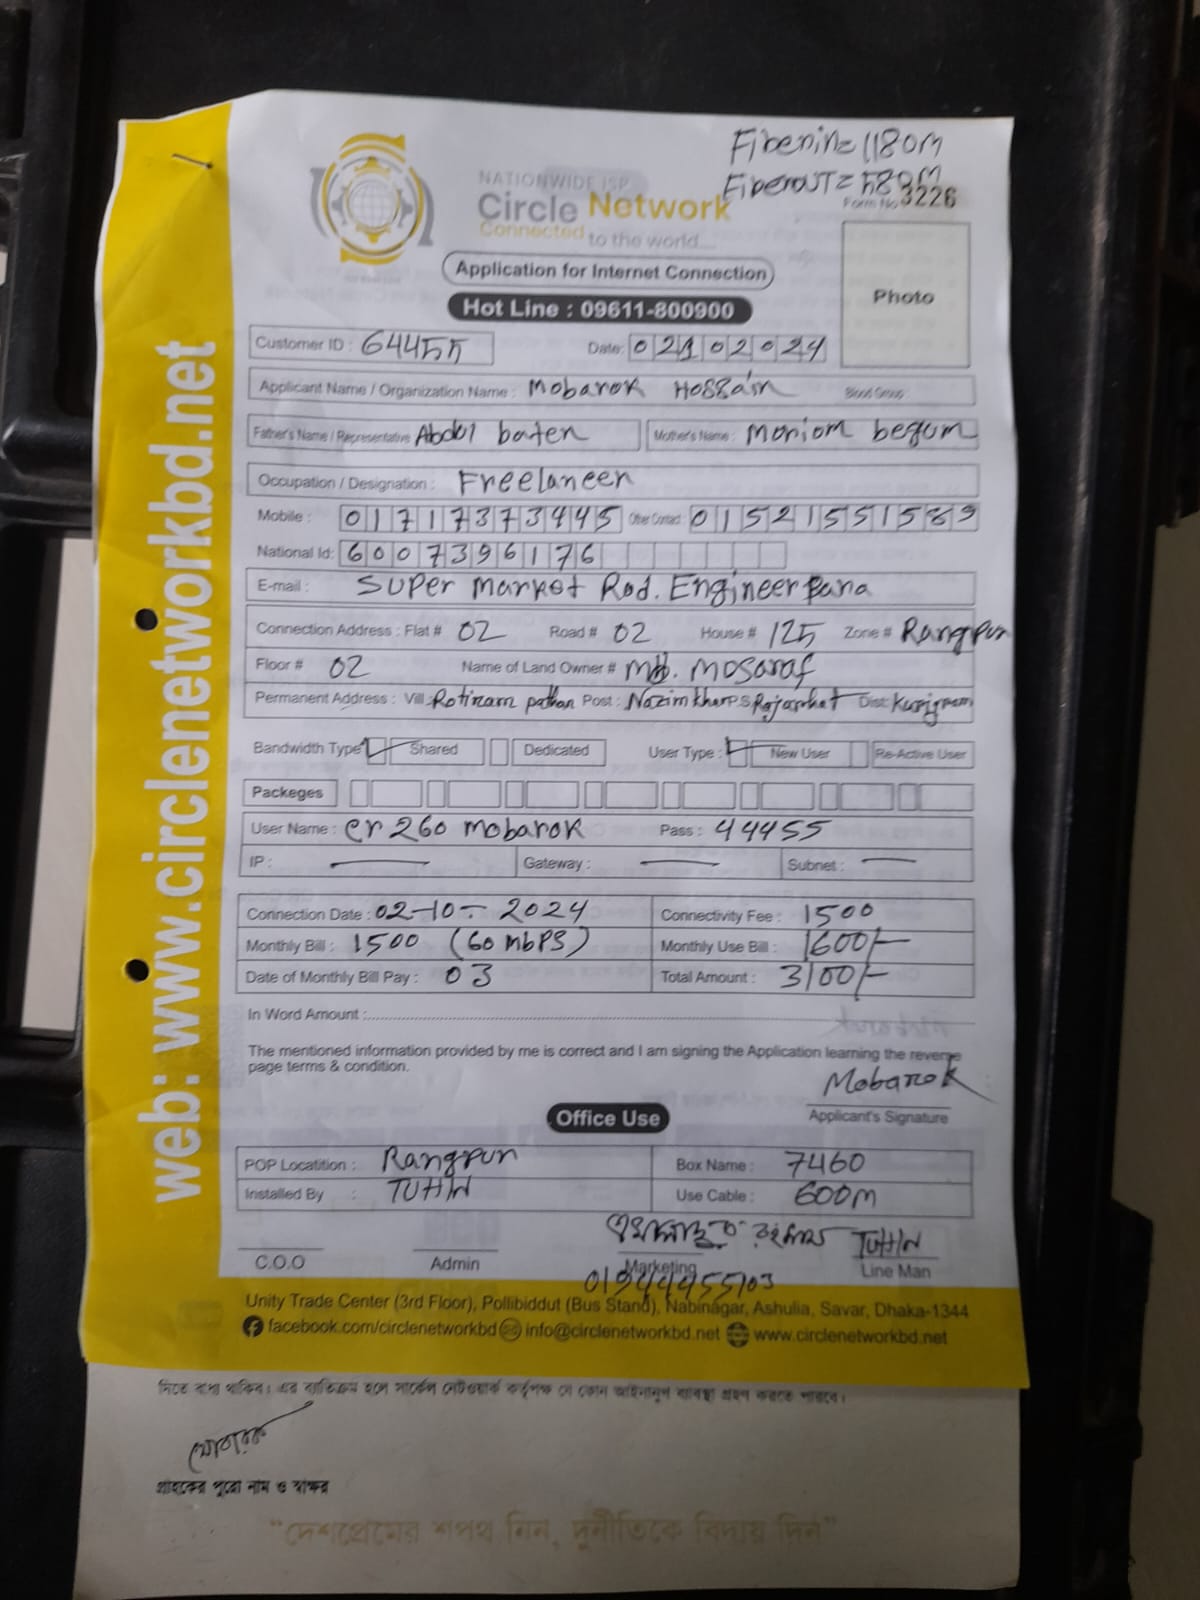 Fiberin= 1180M
Fiberout= 580M
NATIONWIDE ISP
Form No 3226
Circle Network
Connected to the world....
Application for Internet Connection
Photo
Hot Line : 09611-800900
Customer ID : 64455 Date: 02102024
Applicant Name / Organization Name : Mobarok Hossain Blood Group :
Father's Name / Representative Abdul baten Mother's Name : Moriom begum
Occupation / Designation : Freelancer
Mobile : 01717373445 Other Contact : 01521551589
National Id: 6007396176
E-mail : Super Market Rod. Engineer para
Connection Address : Flat # 02 Road # 02 House # 125 Zone # Rangpur
Floor # 02 Name of Land Owner # Md. Mosaraf
Permanent Address : Vill: Ratiram pathan Post : Nazimkhan P.S Rajarhat Dist: Kurigram
Bandwidth Type Shared Dedicated User Type : New User Re-Active User
Packeges
User Name : cr260 mobarok Pass : 44455
IP : Gateway : Subnet :
Connection Date : 02-10- 2024 Connectivity Fee : 1500
Monthly Bill : 1500 (60 mbps) Monthly Use Bill : 1600/-
Date of Monthly Bill Pay : 03 Total Amount : 3100/-
In Word Amount :
The mentioned information provided by me is correct and I am signing the Application learning the reverse
page terms & condition.
Mobarok
Applicant's Signature
Office Use
POP Locatition : Rangpur Box Name : 7460
Installed By : TUHIN Use Cable : 600M
TUHIN
C.O.O Admin Marketing Line Man
Unity Trade Center (3rd Floor), Pollibiddut (Bus Stand), Nabinagar, Ashulia, Savar, Dhaka-1344
facebook.com/circlenetworkbd info@circlenetworkbd.net www.circlenetworkbd.net
web: www.circlenetworkbd.net
দিতে বাধ্য থাকিব। এর ব্যতিক্রম হলে সার্কেল নেটওয়ার্ক কর্তৃপক্ষ যে কোন আইনানুগ ব্যবস্থা গ্রহণ করতে পারবে।
মোবারক
গ্রাহকের পুরো নাম ও স্বাক্ষর
"দেশপ্রেমের শপথ নিন, দুর্নীতিকে বিদায় দিন"